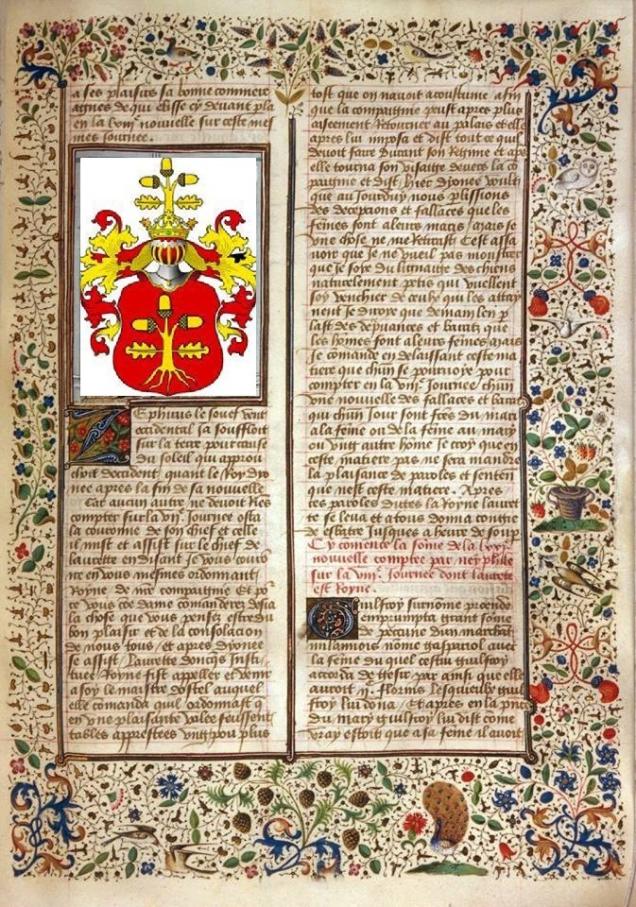 a ses plaisirs sa bonne
en la nouvelle sur ceste mes
mes journee.
Ephirus le souef vent
occidental ja souffloit
sur la terre pour cause
du soleil qui
doit doccident quant le Roy dyo
nee apres la fin de sa nouvelle
car aucun autre ne devoit
compter sur la vije. Journee osta
la couronne de son chief et celle
il mist et assist sur le chief de
laurette en disant Je vous
ne en vous mesmes ordonnant
Royne de nre compaignie Et po
ce vous coe dame comanderes desia
la chose que vous penses estre du
bon plaisir et de la consolacion
de nous tous, et apres dyonee
se assist. Laurette doncqs
tuee Royne fist appeller et venir
a soy le maistre dostel auquel
elle comanda quil ordonnast q
en une plaisante valee feussent
tables apprestees ung pou plus
tost que on navoit acoustume afin
que la compaignie peust apres plus
aiseement Retourner au palais et elle
apres lui imposa et dist tout ce quil
devoit faire durant son Regime et
elle tourna son visaige devers la co
paignie et dist hier dyonee voult
que au jourduy nous
des decepcions et fallaces que les
femes font a leurs maris mais se
une chose ne me
voir que je ne vueil pas monstrer
que je soye du lignaige des chiens
naturelement petis qui vuellent
soy venchier de ceulx qui les
nent Je diroye que demain len p
last des
les homes font a leurs femes mais
Je comande en delaissant ceste ma
tiere que chun se pourvoye pour
compter en la viije. Journee chun
une nouvelle des fallaces et
qui chun jour sont fces du mari
a la feme ou de la feme au mary
ou dung autre home Je croy que en
ceste matiere pas ne sera maindre
la plaisance de paroles et
que nest ceste matiere. Apres
ces paroles dittes la Royne laurette
te se leva et a tous donna congie
de esbatre Jusques a heure de soup
Cy comence la some de la
nouvelle comptee par neyphille
sur la viije. Journee dont laurette
est Royne.
Guilfroy surnome
emprumpta grant some
de peccune dun marchant
milannois nome gaspariol avec
la feme du quel cestui guilfroy
accorda de gesir par ainsi que elle
auroit ijc. florins lesquelx
froy lui dona. Et apres en la
du mary guilfroy lui dist come
vray estoit que a sa feme il avoit